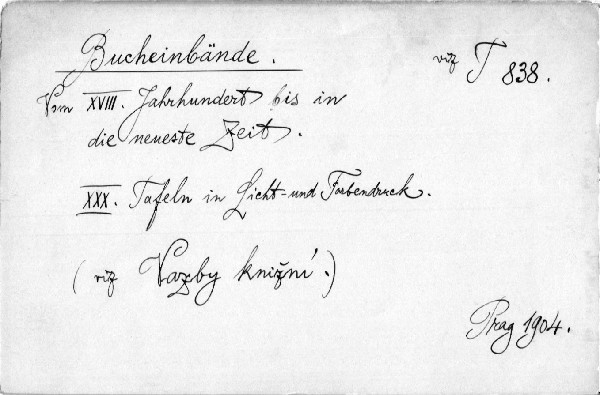 Bucheinbände.
viz T 838.
Vom XVIII. Jahrhundert bis in
die neueste Zeit.
XXX. Tafeln in Licht- und Farbendruck.
(viz Vazby knižní.)
Prag 1904.